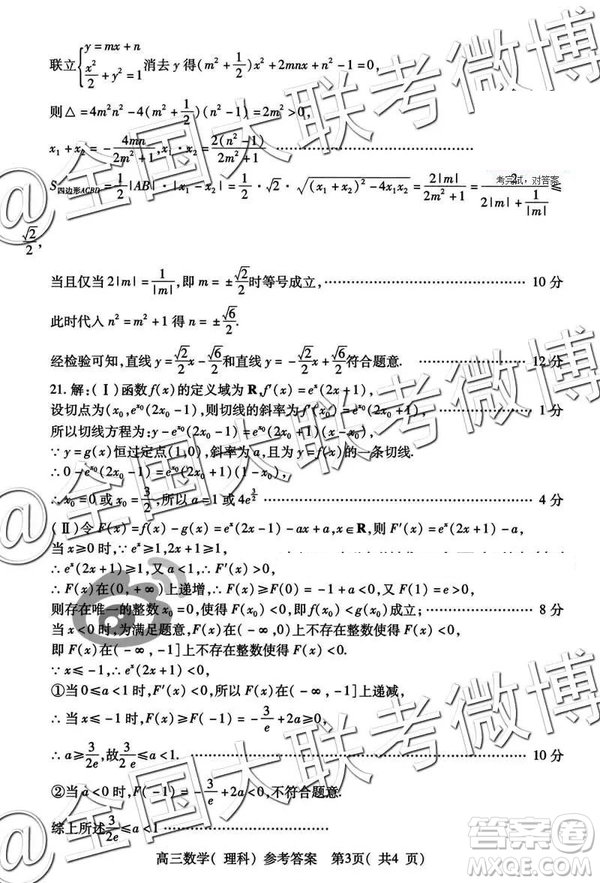 联立{y=mx+n, x²/2+y²=1 消去y得(m²+1/2)x²+2mnx+n²-1=0,
则△=4m²n²-4(m²+1/2)(n²-1)=2m²>0,
x₁+x₂=-4mn/(2m²+1),x₁·x₂=2(n²-1)/(2m²+1)
S四边形ACBD=1/2|AB|·|x₁-x₂|=1/2·√2·√((x₁+x₂)²-4x₁x₂)=2|m|/(2m²+1)=2/(2|m|+1/|m|)≤
考完试,对答案
√2/2,
当且仅当2|m|=1/|m|,即m=±√2/2时等号成立,…………10分
此时代入n²=m²+1得n=±√6/2.
经检验可知,直线y=√2/2x-√6/2和直线y=-√2/2x+√6/2符合题意.…………12分
21.解:(Ⅰ)函数f(x)的定义域为R,f′(x)=eˣ(2x+1),
设切点为(x₀,e^x₀(2x₀-1),则切线的斜率为f′(x₀)=e^x₀(2x₀+1),…………1分
所以切线方程为:y-e^x₀(2x₀-1)=e^x₀(2x₀+1)(x-x₀),
∵y=g(x)恒过定点(1,0),斜率为a,且为y=f(x)的一条切线.
∴0-e^x₀(2x₀-1)=e^x₀(2x₀+1)(1-x₀),
∴x₀=0或x₀=3/2,所以a=1或4e^(3/2)…………4分
(Ⅱ)令F(x)=f(x)-g(x)=eˣ(2x-1)-ax+a,x∈R,则F′(x)=eˣ(2x+1)-a,
当x≥0时,∵eˣ≥1,2x+1≥1,
∴eˣ(2x+1)≥1,又a<1,∴F′(x)>0,
∴F(x)在(0,+∞)上递增,∴F(x)≥F(0)=-1+a<0,又F(1)=e>0,
则存在唯一的整数x₀=0,使得F(x₀)<0,即f(x₀)<g(x₀)成立;…………8分
当x<0时,为满足题意,F(x)在(-∞,-1]上不存在整数使F(x)<0,
即F(x)在(-∞,-1]上不存在整数使F(x)<0.
∵x≤-1,∴eˣ(2x+1)<0,
①当0≤a<1时,F′(x)<0,∴F(x)在(-∞,-1)上递减,
∴当x≤-1时,F(x)≥F(-1)=-3/e+2a≥0,
∴a≥3/2e,故3/2e≤a<1.…………10分
②当a<0时,F(-1)=-3/e+2a<0,不符合题意.
综上所述3/2e≤a<1.
高三数学(理科)参考答案 第3页(共4页)
@全国大联考微博
@全国大联考微博
@全国大联考微博
答案圈
MXQE.COM